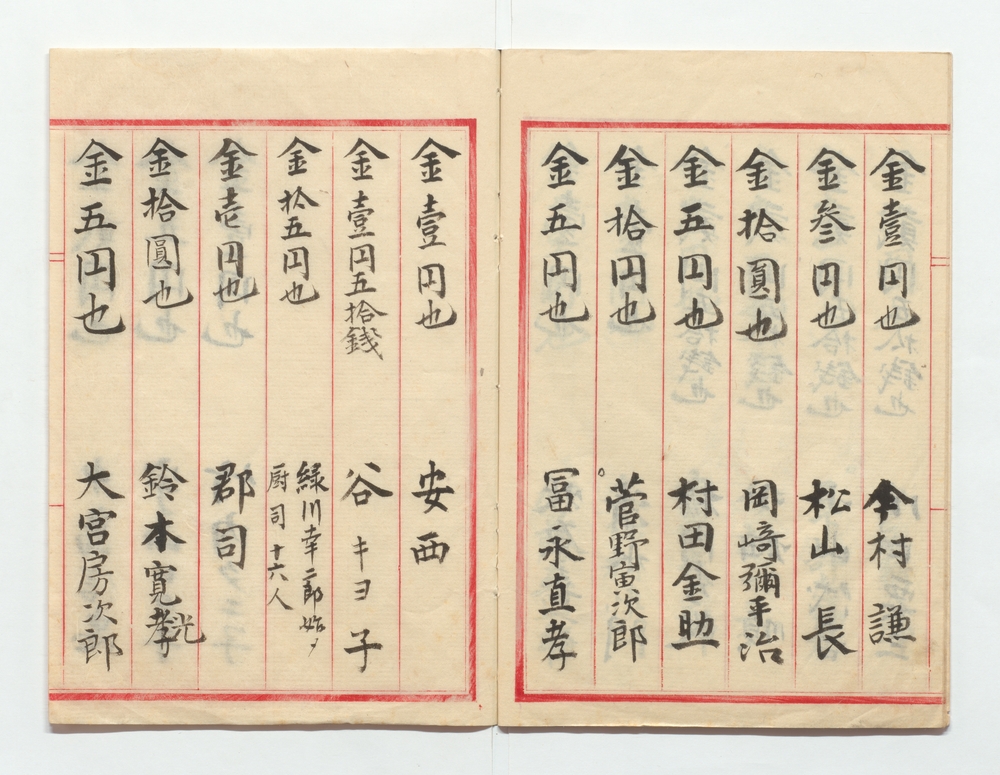 金壹円也 今村謙
金叄円也 松山長
金拾圓也 岡﨑彌平治
金五円也 村田金助
金拾円也 菅野寅次郎
金五円也 冨永直孝
金壹円也 安西
金壹円五拾銭 谷キヨ子
金拾五円也 緑川幸二郎始メ
厨司十六人
金壱円也 郡司
金拾圓也 鈴木寛孝光
金五円也 大宮房次郎